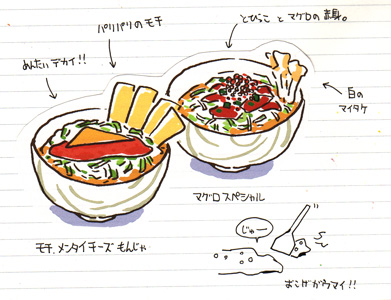 とびっこ と マグロの 赤身。
パリパリの モチ
めんたい デカイ!!
白の
マイタケ
マグロ スペシャル
モチ、メンタイチーズ もんじゃ
じゅー
おこげがウマイ!!